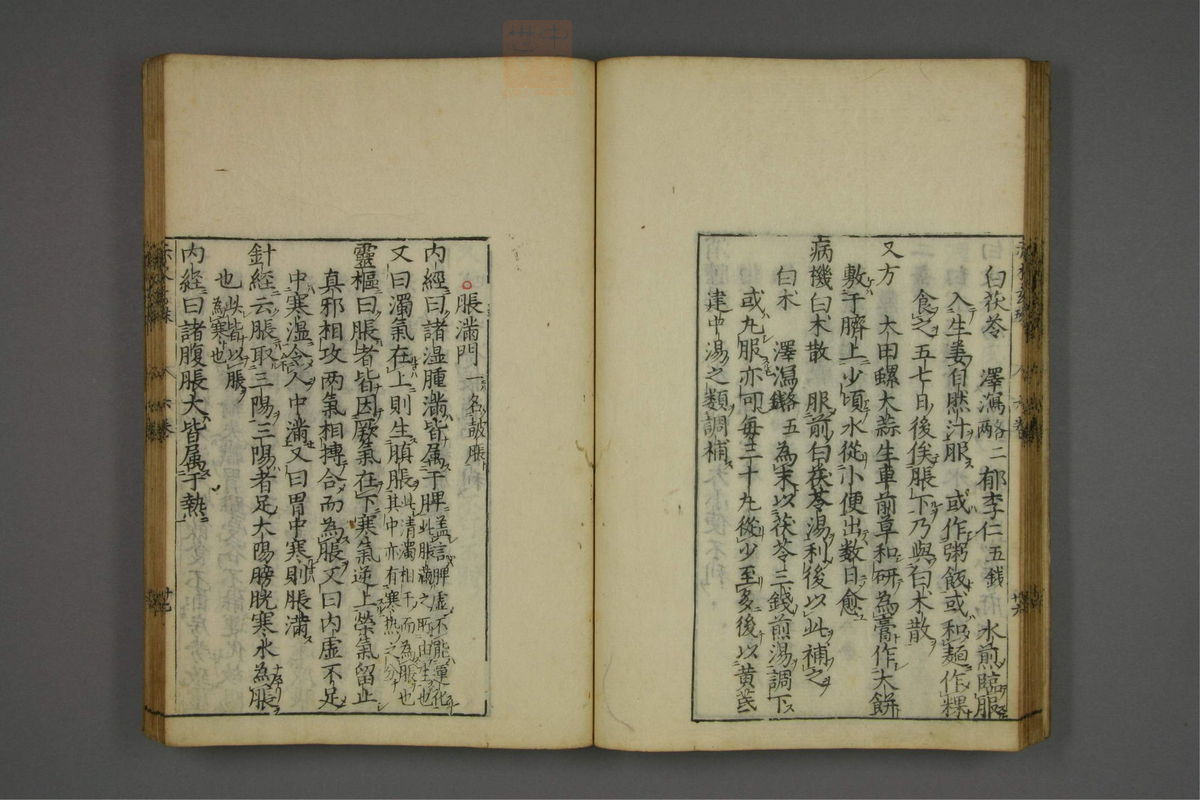 白茯苓　澤瀉各二両　郁李仁五錢　水煎臨服
入生姜自然汁服　或作粥飯或和麺作粿
食之五七日後俟脹下乃與白木散
又方　大田螺大蒜生車前草和研為膏作大餅
敷于臍上少頃水從小便出数日愈
病機白木散　服前白茯苓湯利後以此補之
白木　澤瀉各五錢　為末以茯苓三錢煎湯調下
或丸服亦可毎三十丸從少至多後以黄芪
建中湯之類調補
脹滿門　一名鼓脹
内經曰諸湿腫滿皆属于脾此脹滿之所由生也盖言脾虚不能運化
又曰濁氣在上則生䐜脹此清濁相干而為脹也其中亦有寒热之分
靈樞曰脹者皆因厥氣在下寒氣逆上榮氣留止
真邪相攻两氣相搏合而為脹又曰内虚不足
中寒湿令人中滿又曰胃中寒則脹滿
針經云脹取三陽三陽者足太陽膀胱寒水為脹
也此皆以脹為寒也
内經曰諸腹脹大皆属于熱